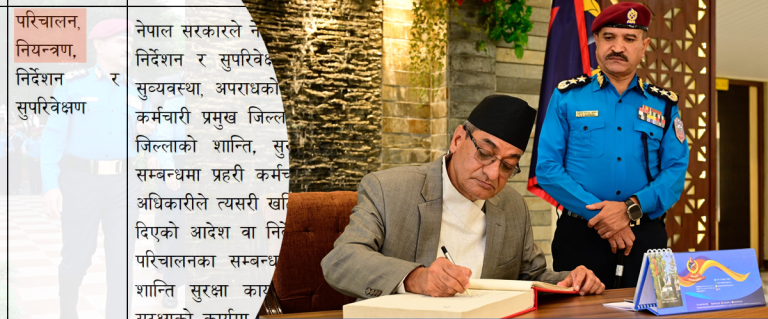 परिचालन,
नियन्त्रण,
निर्देशन र
सुपरिवेक्षण
नेपाल सरकारले
निर्देशन र सुपरिवेक्ष
सुव्यवस्था, अपराधको
कर्मचारी प्रमुख जिल्ला
जिल्लाको शान्ति,
सम्बन्धमा प्रहरी कर्मच
अधिकारीले त्यसरी
दिएको आदेश वा
परिचालनका सम्बन्ध
शान्ति सुरक्षा